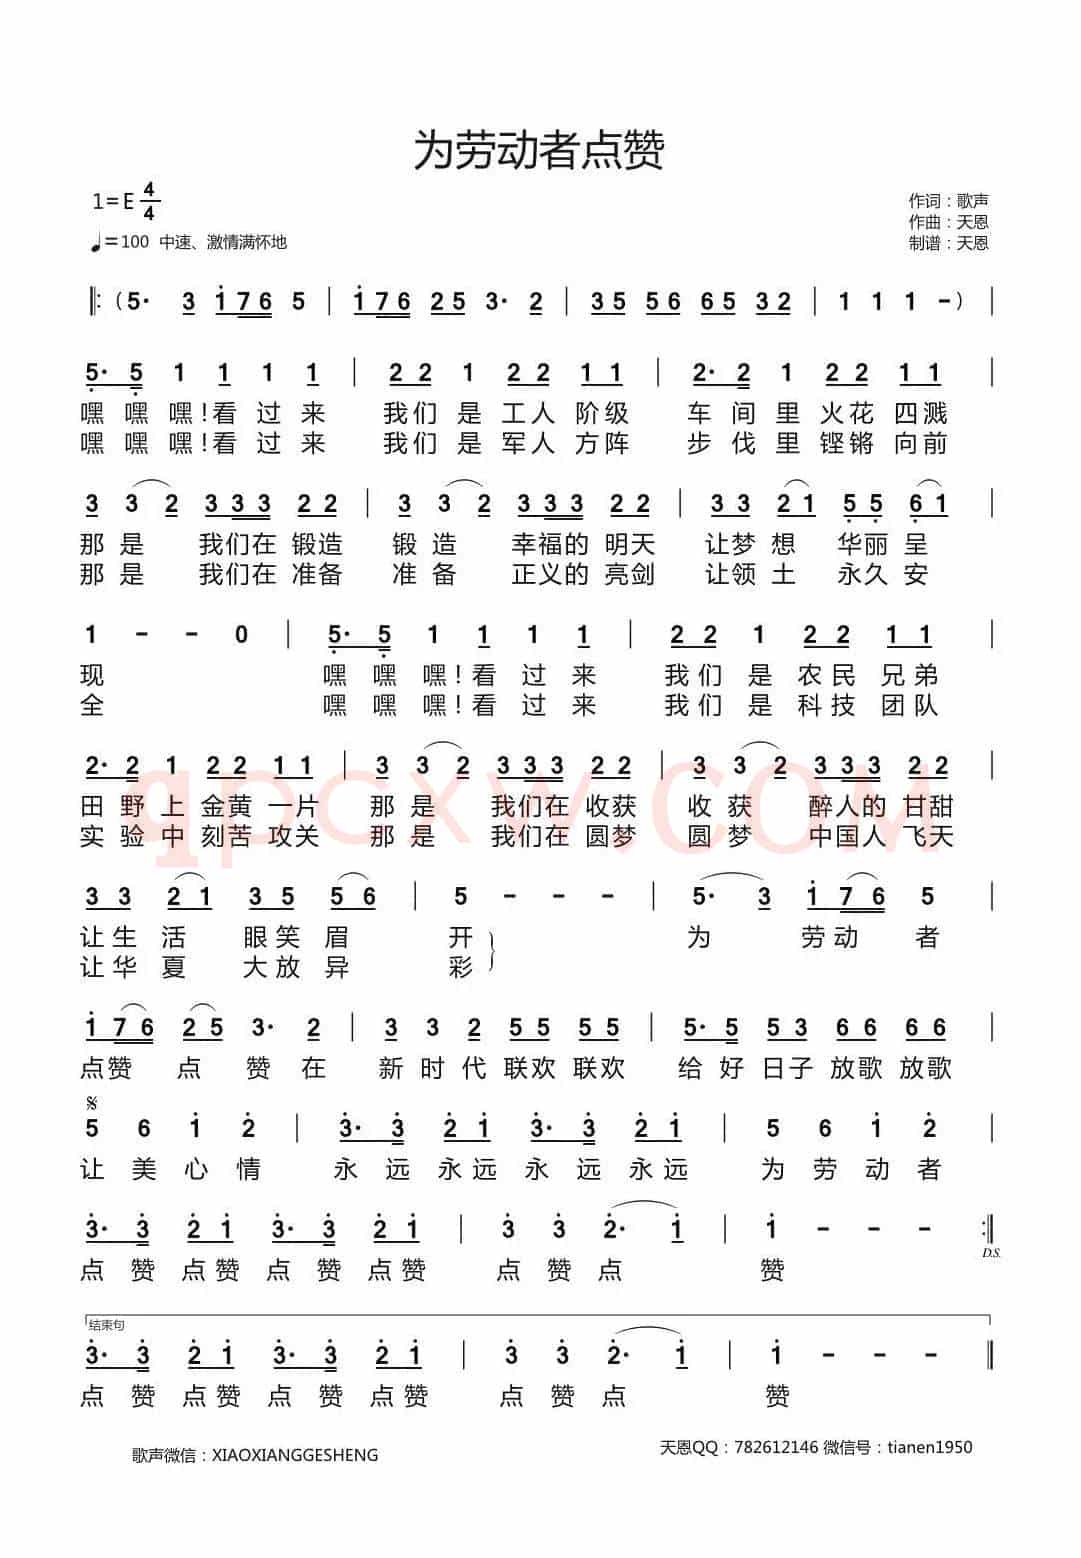 为劳动者点赞
1=E 4/4
作词：歌声
作曲：天恩
♩=100 中速、激情满怀地
制谱：天恩
‖:（5· 3 i76 5 | i76 25 3· 2 | 35 56 65 32 | 1 1 1 -）|
5· 5 1 1 1 1 | 22 1 22 11 | 2·2 1 22 11 |
嘿嘿嘿!看过来 我们是工人阶级 车间里火花四溅
嘿嘿嘿!看过来 我们是军人方阵 步伐里铿锵向前
3 3 2 333 22 | 3 3 2 333 22 | 33 21 55 61 |
那是 我们在锻造 锻造 幸福的明天 让梦想 华丽呈
那是 我们在准备 准备 正义的亮剑 让领土 永久安
1 - - 0 | 5· 5 1 1 1 1 | 22 1 22 11 |
现 嘿嘿嘿!看过来 我们是农民兄弟
全 嘿嘿嘿!看过来 我们是科技团队
2·2 1 22 11 | 3 3 2 333 22 | 3 3 2 333 22
田野上金黄一片 那是 我们在收获 收获 醉人的甘甜
实验中刻苦攻关 那是 我们在圆梦 圆梦 中国人飞天
qpcxw.COM
33 21 35 56 | 5 - - - | 5· 3 i76 5 |
让生活 眼笑眉 开 为 劳动 者
让华夏 大放异 彩
i76 25 3· 2 | 3 3 2 55 55 | 5·5 53 66 66 |
点赞 点 赞在 新时代联欢联欢 给好日子放歌放歌
𝄋
5 6 i 2 | 3·3 2i 3·3 2i | 5 6 i 2 |
让美心情 永远永远永远永远 为劳动者
3·3 2i 3·3 2i | 3 3 2· i | i - - - :‖
D.S.
点赞点赞点赞点赞 点赞点 赞
结束句
3·3 2i 3·3 2i | 3 3 2· i | i - - - ‖
点赞点赞点赞点赞 点赞点 赞
歌声微信：XIAOXIANGGESHENG
天恩QQ：782612146 微信号：tianen1950